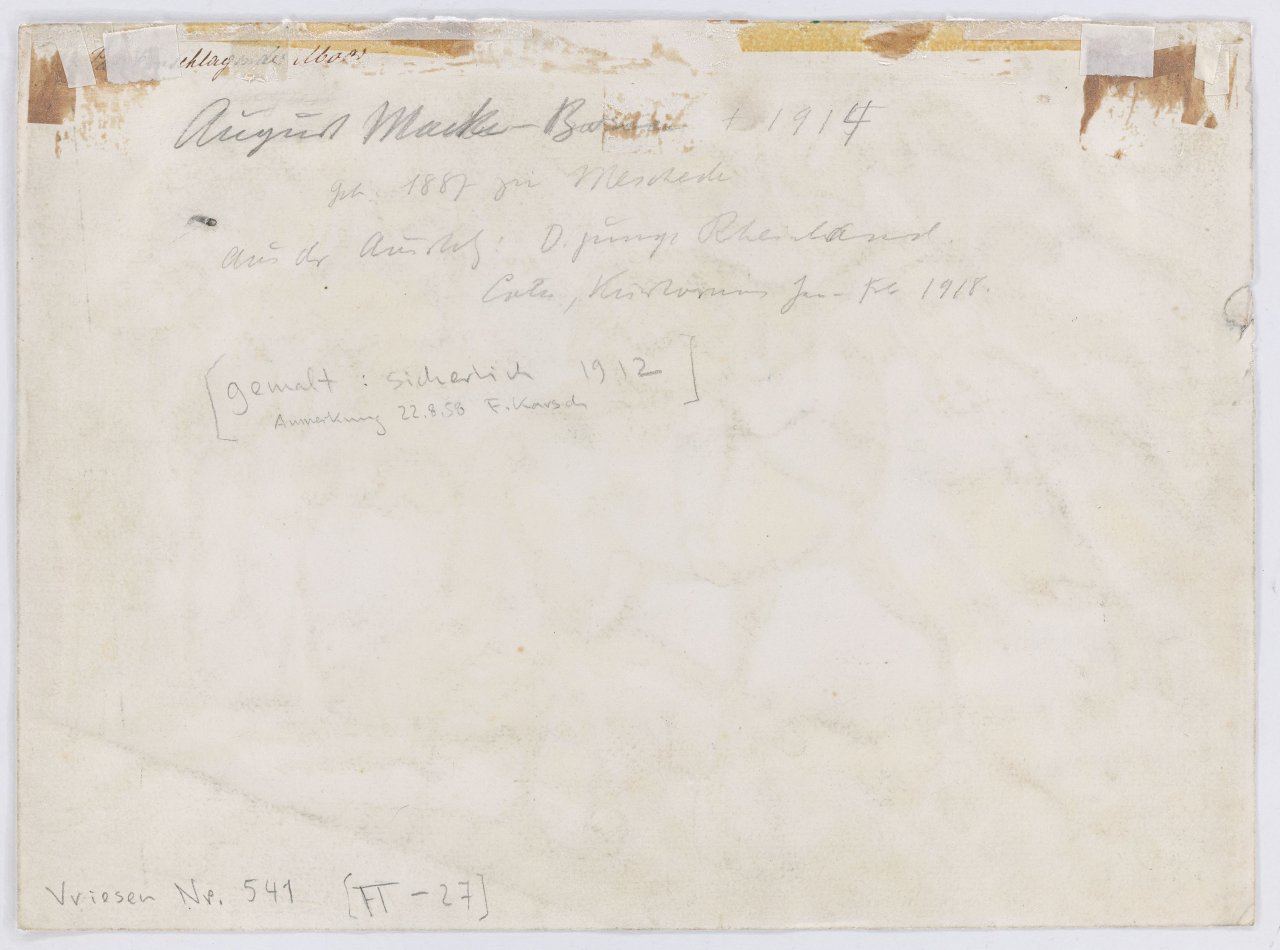 August Macke – Bonn † 1914
geb. 1887 zu Meschede
aus der Ausstlg: D. junge Rheinland
Cöln, Kunstverein Jan – Feb 1918.
[gemalt : sicherlich 1912]
Anmerkung 22.8.58 F. Karsch
Vriesen Nr. 541 [FT – 27]